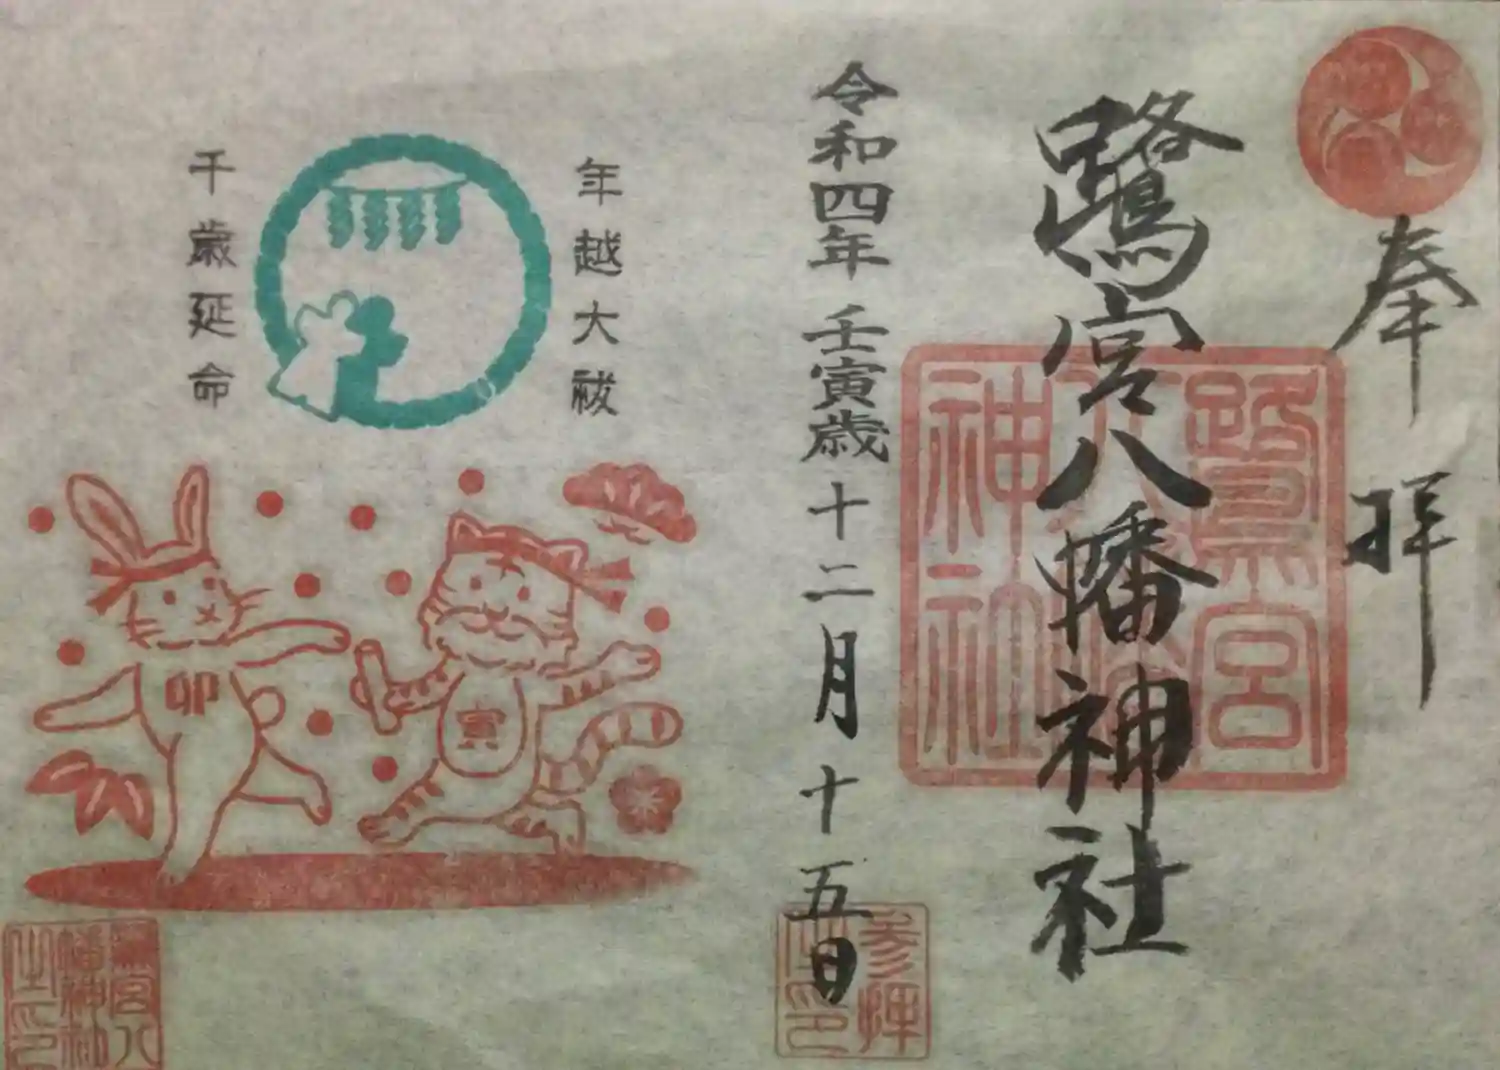 奉拝
鷺宮八幡神社
鷺宮八幡神社
令和四年 壬寅歳 十二月十五日
参拝之印
年越大祓
千歳延命
寅
卯
鷺宮八幡神社之印